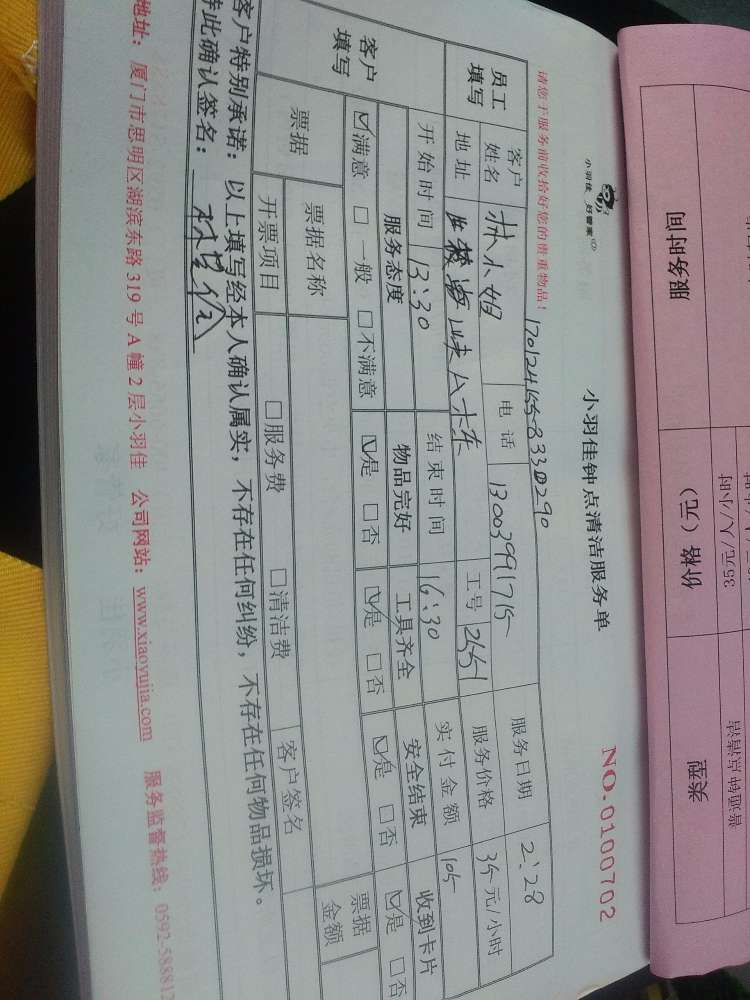 服务时间 价格（元） 类型
35元/人/小时 普通钟点清洁
小羽佳 好管家
小羽佳钟点清洁服务单 NO.0100702
请您于服务前收拾好您的贵重物品！
员工填写 客户姓名 林小姐 电话 13003991715 服务日期 2:28
地址 工号 2651 服务价格 35元/小时
开始时间 13:30 结束时间 16:30 实付金额 105
客户填写 服务态度 物品完好 工具齐全 安全结束 收到卡片
☑满意 □一般 □不满意 ☑是 □否 ☑是 □否 ☑是 □否 ☑是 □否
票据 票据名称 票据金额
开票项目 □服务费 □清洁费 客户签名
客户特别承诺：以上填写经本人确认属实，不存在任何纠纷，不存在任何物品损坏。
特此确认签名：
地址：厦门市思明区湖滨东路319号A幢2层小羽佳 公司网站：www.xiaoyujia.com 服务监督热线：0592-58881